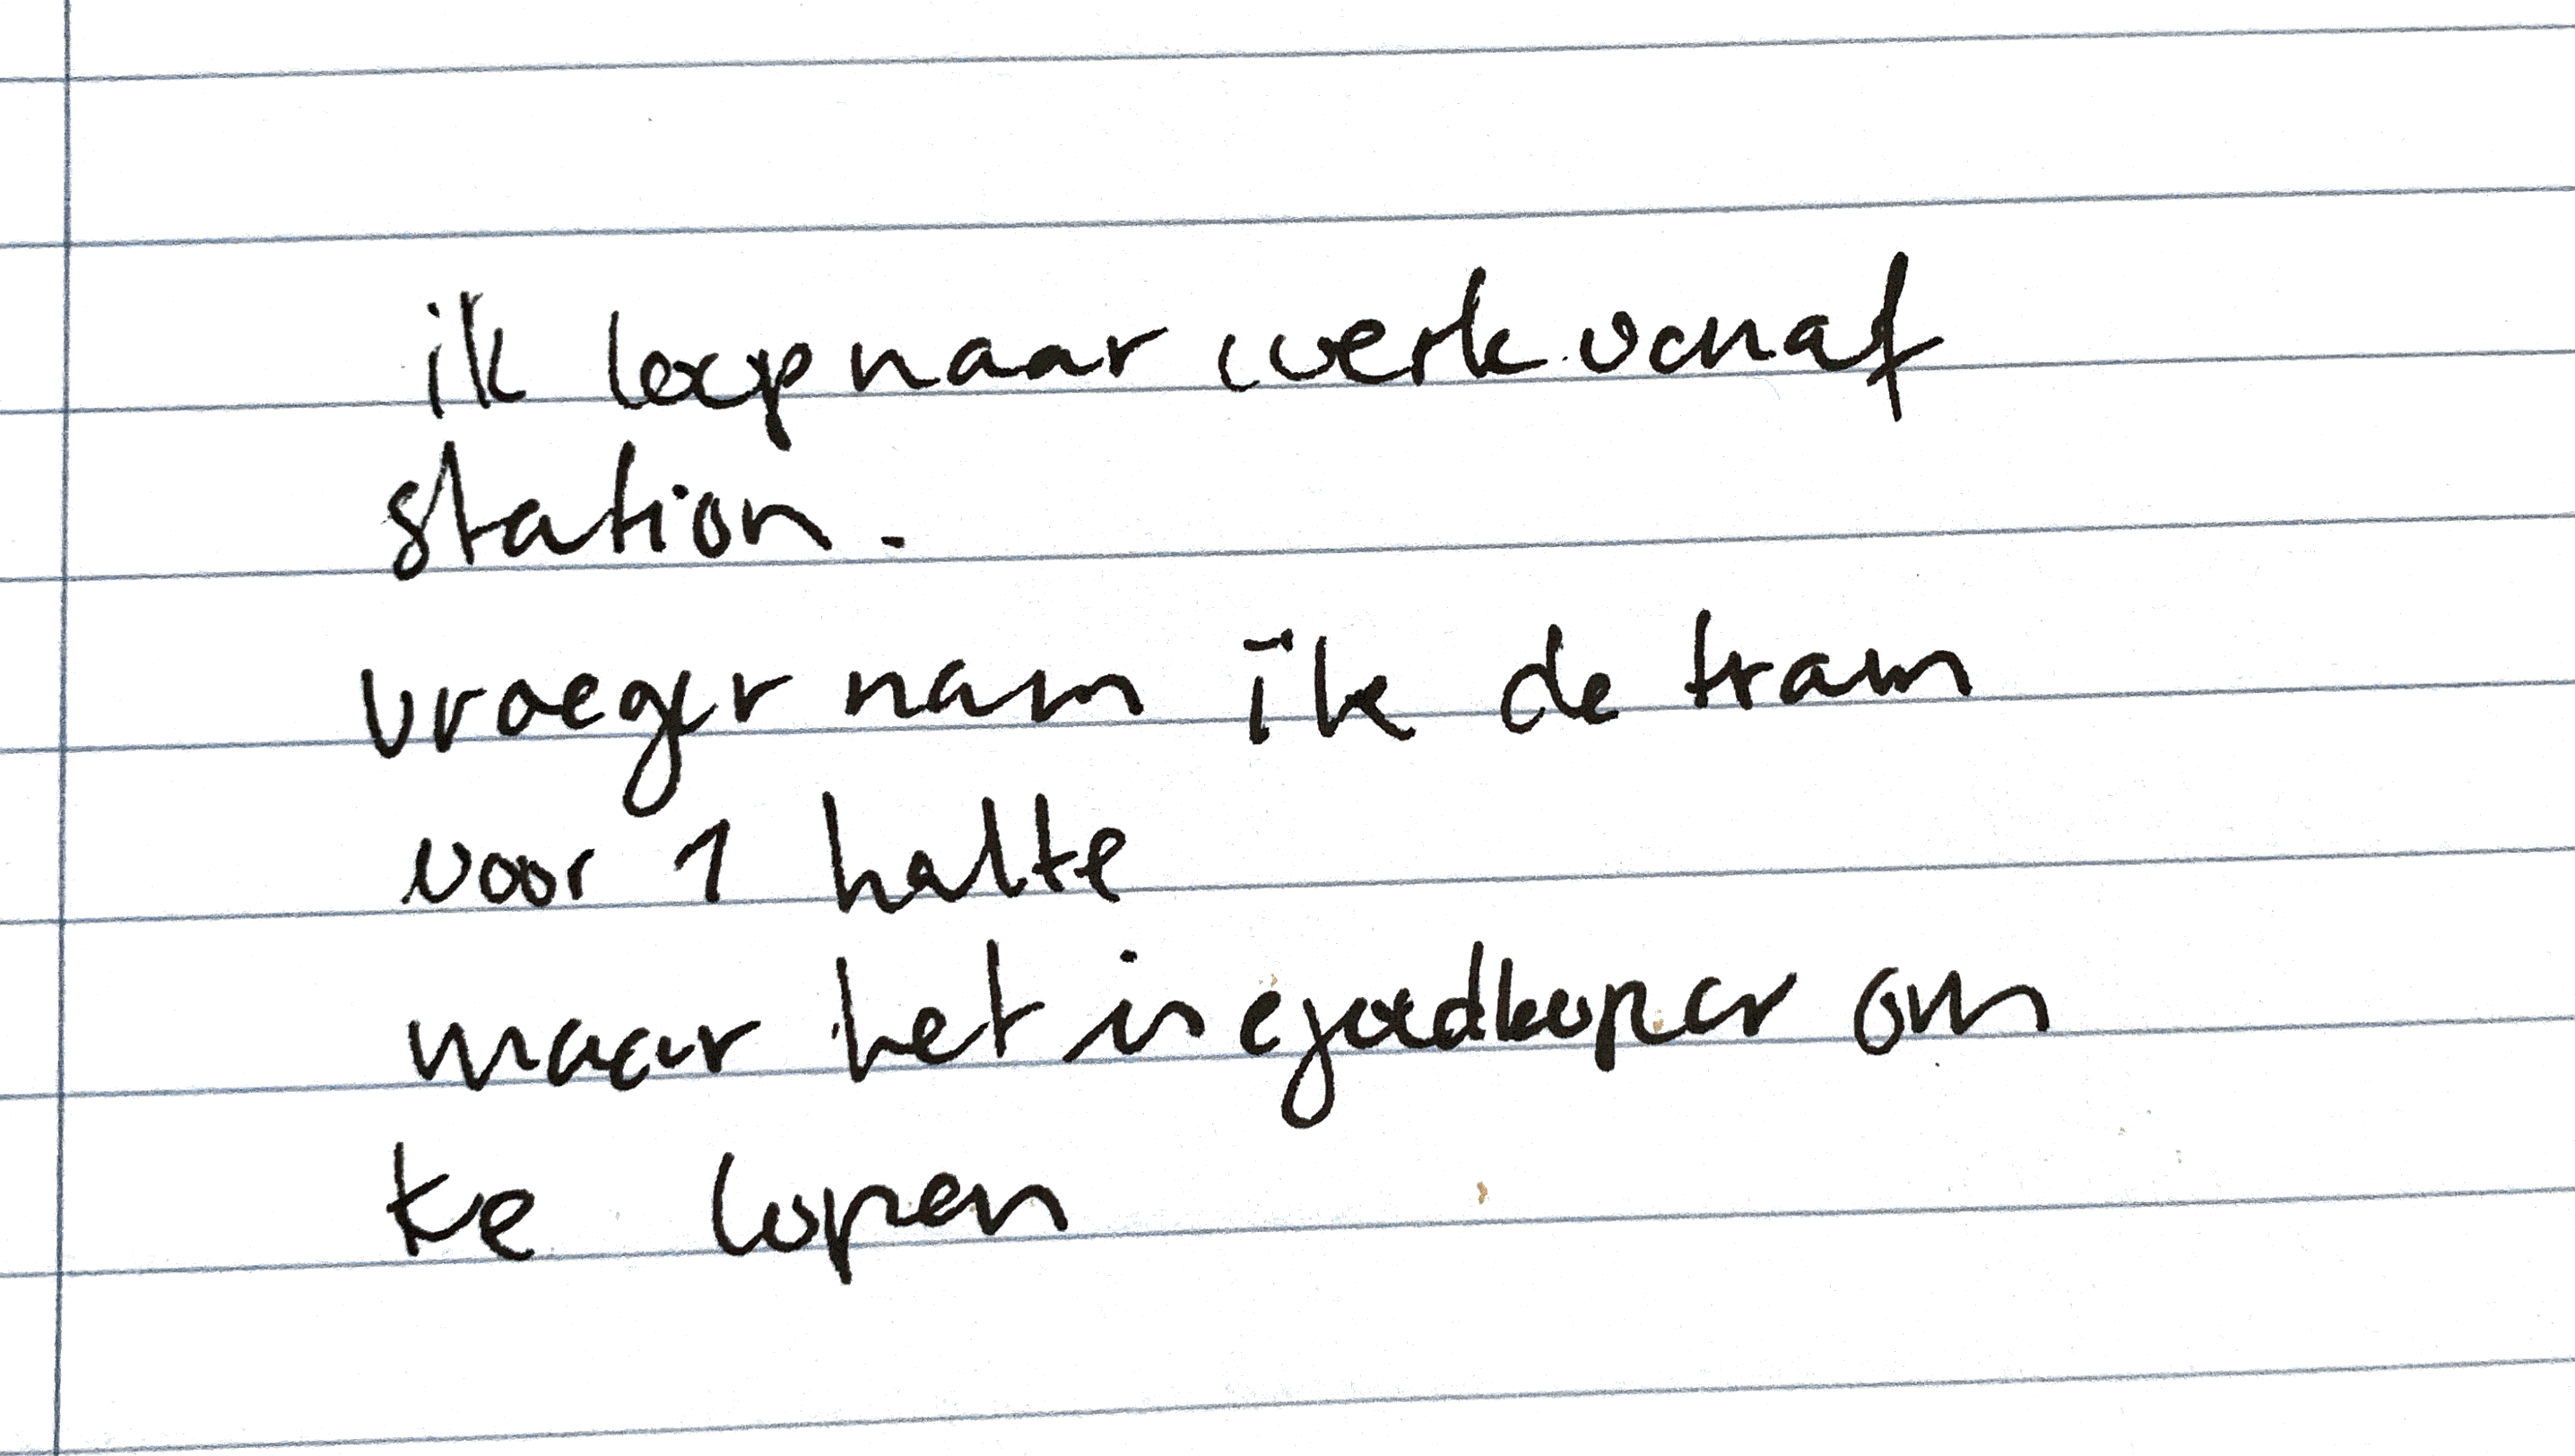 ik loop naar werk vanaf
station.
vroeger nam ik de tram
voor 1 halte
maar het is goedkoper om
te lopen